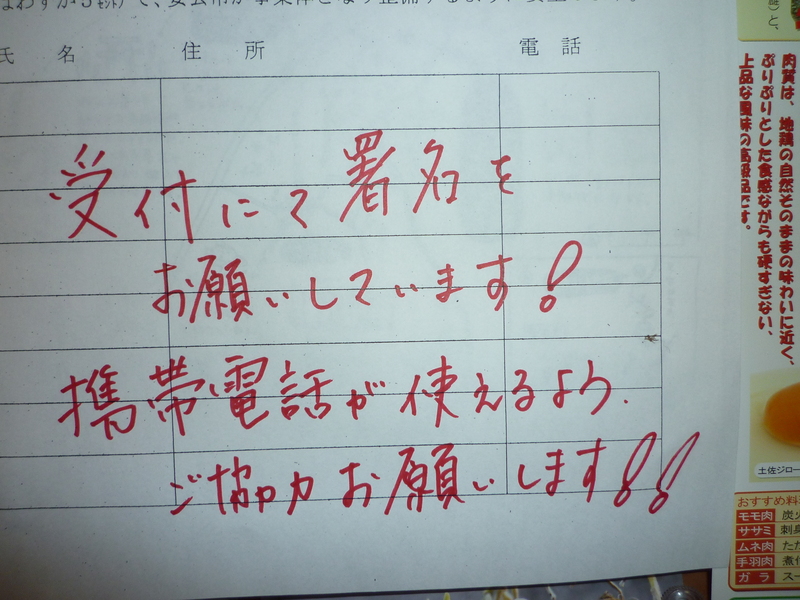 氏 名 住 所 電 話
受付にて署名を
お願いしています!
携帯電話が使えるよう.
ご協力お願いします!!
肉質は、地鶏の自然そのままの味わいに近く、
ぷりぷりとした食感ながらも硬すぎない、
上品な風味の高級品です。
土佐ジロー
おすすめ料
モモ肉 炭火
ササミ 刺身
ムネ肉 たた
手羽肉 煮付
ガラ スー